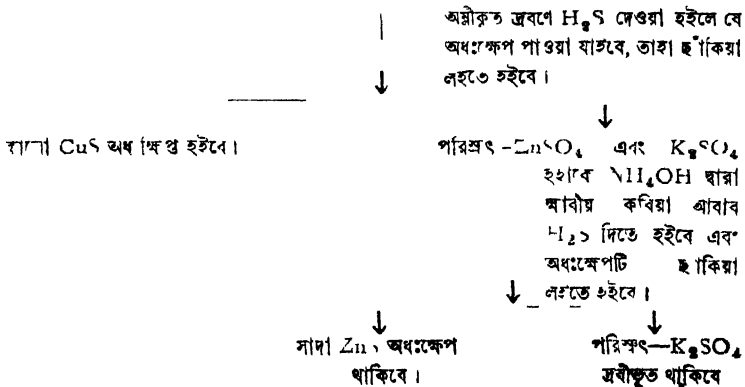 অম্লীকৃত দ্রবণে H₂S দেওয়া হইলে যে
অধঃক্ষেপ পাওয়া যাইবে, তাহা ছাঁকিয়া
লইতে হইবে।
CuS অধঃক্ষিপ্ত হইবে।
পরিস্রুৎ-ZnSO₄ এবং K₂SO₄
ইহাকে NH₄OH দ্বারা
ক্ষারীয় করিয়া আবার
H₂S দিতে হইবে এবং
অধঃক্ষেপটি ছাঁকিয়া
লইতে হইবে।
সাদা ZnS অধঃক্ষেপ
থাকিবে।
পরিস্রুৎ—K₂SO₄
দ্রবীভূত থাকিবে